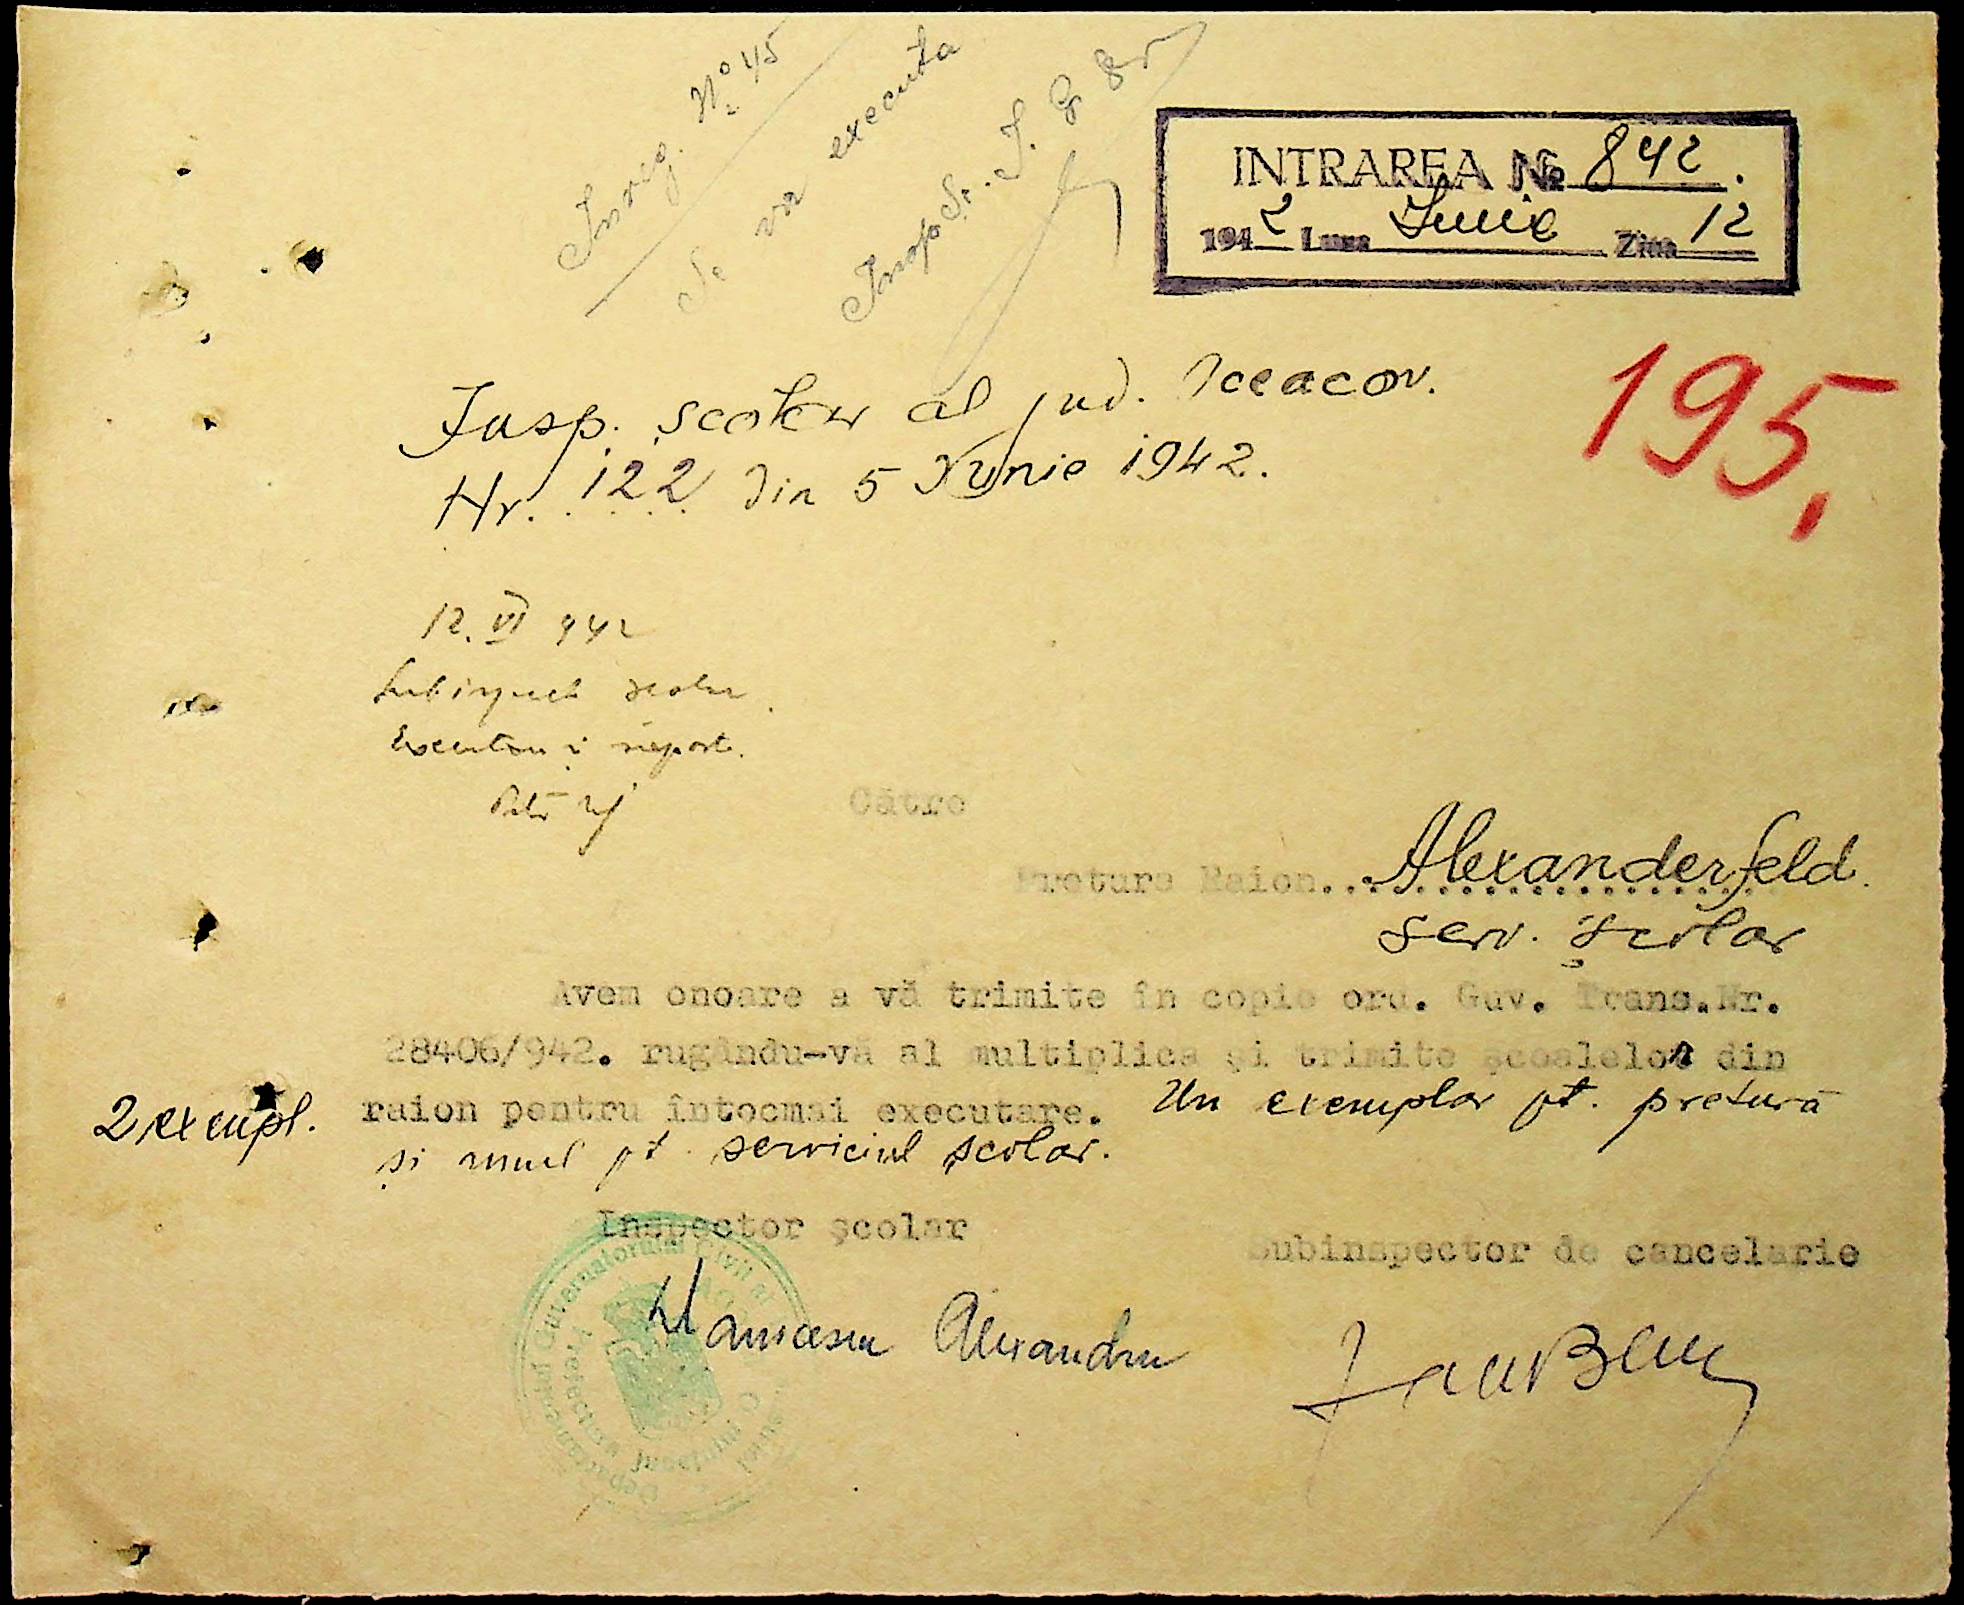 Inreg. Nº 45
Se va executa
INTRAREA № 842.
1942 Luna Iunie Ziua 12
195,
Insp. școlar al jud. Oceacov.
Nr. 122 din 5 Iunie 1942.
12. VI 942
Subinspect școlar
Către
Pretura Raion... Alexanderfeld.
serv. școlar
Avem onoare a vă trimite în copie ord. Guv. Trans.Nr.
28406/942. rugându-vă al multiplica și trimite școalelor din
raion pentru întocmai executare. Un exemplar pt. pretură
2 exempl.
și unul pt. serviciul școlar.
Inspector școlar
Subinspector de cancelarie
Alexandru
Guvernatorului Civil al
Prefectura Județului